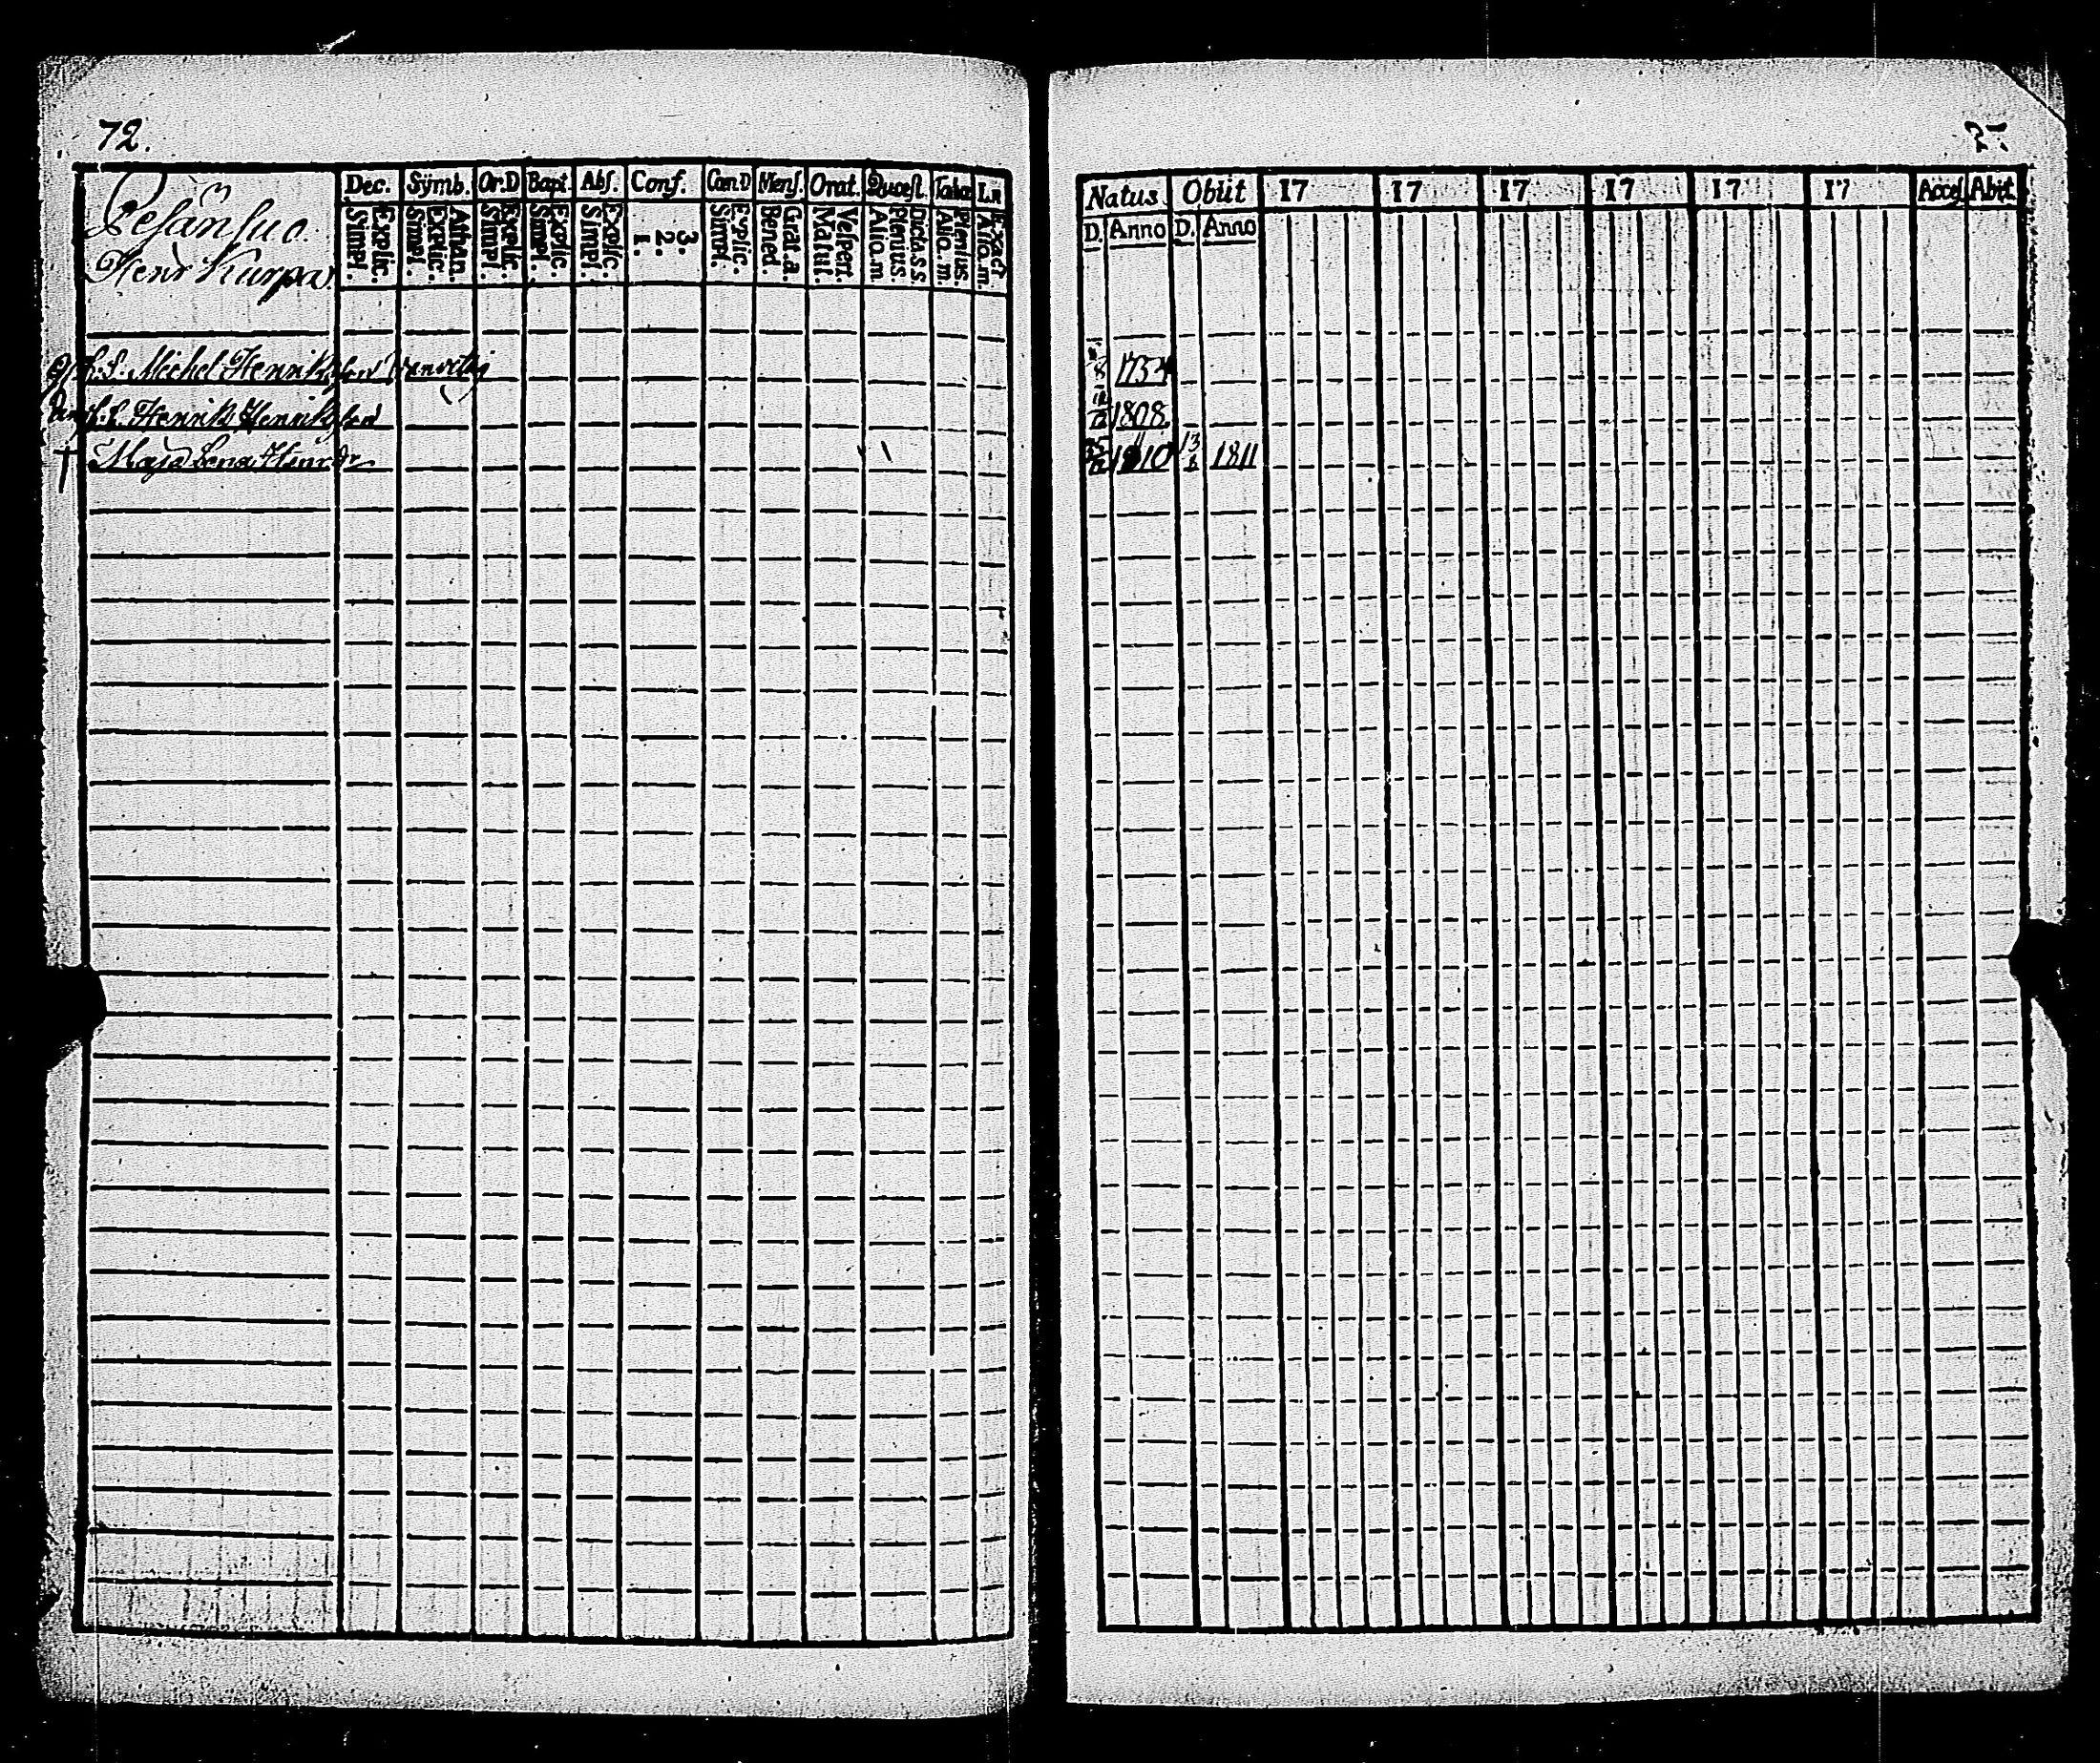 72.
Pesänsuo.
Henr Kurpa
Dec. Symb. Or.D Bapt. Abs. Conf. Cœn.D Mens. Orat. Quæst. Tabœ L.n
Explic. Simpl. Athan. Explic. Simpl. Explic. Simpl. Explic. Simpl. Explic. Simpl. 3. 2. 1. Explic. Simpl. Grat.a. Bened. Vespert. Matut. Dicta.s.s. Plenius. Aliq.m Plenius. Aliq.m Exact. Aliq.m.
Michel Henriksson
Henrik Henriksson
† Maja Lena Henr dr
Natus. Obiit 17 17 17 17 17 17 Acces. Abiit
D. Anno D. Anno
1808.
1810 13/6 1811